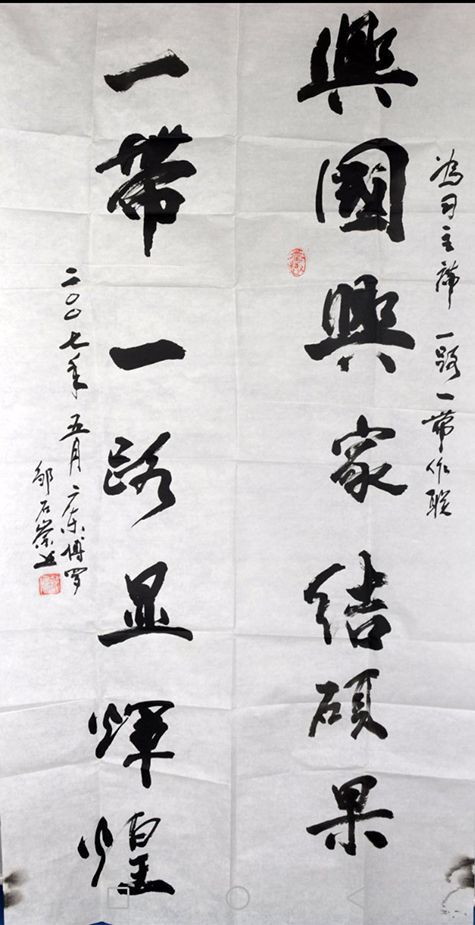 为习主席 一路一带作联
興國興家结硕果
一帶一路显輝煌
二〇〇七年 五月 广东博罗
邹石 书